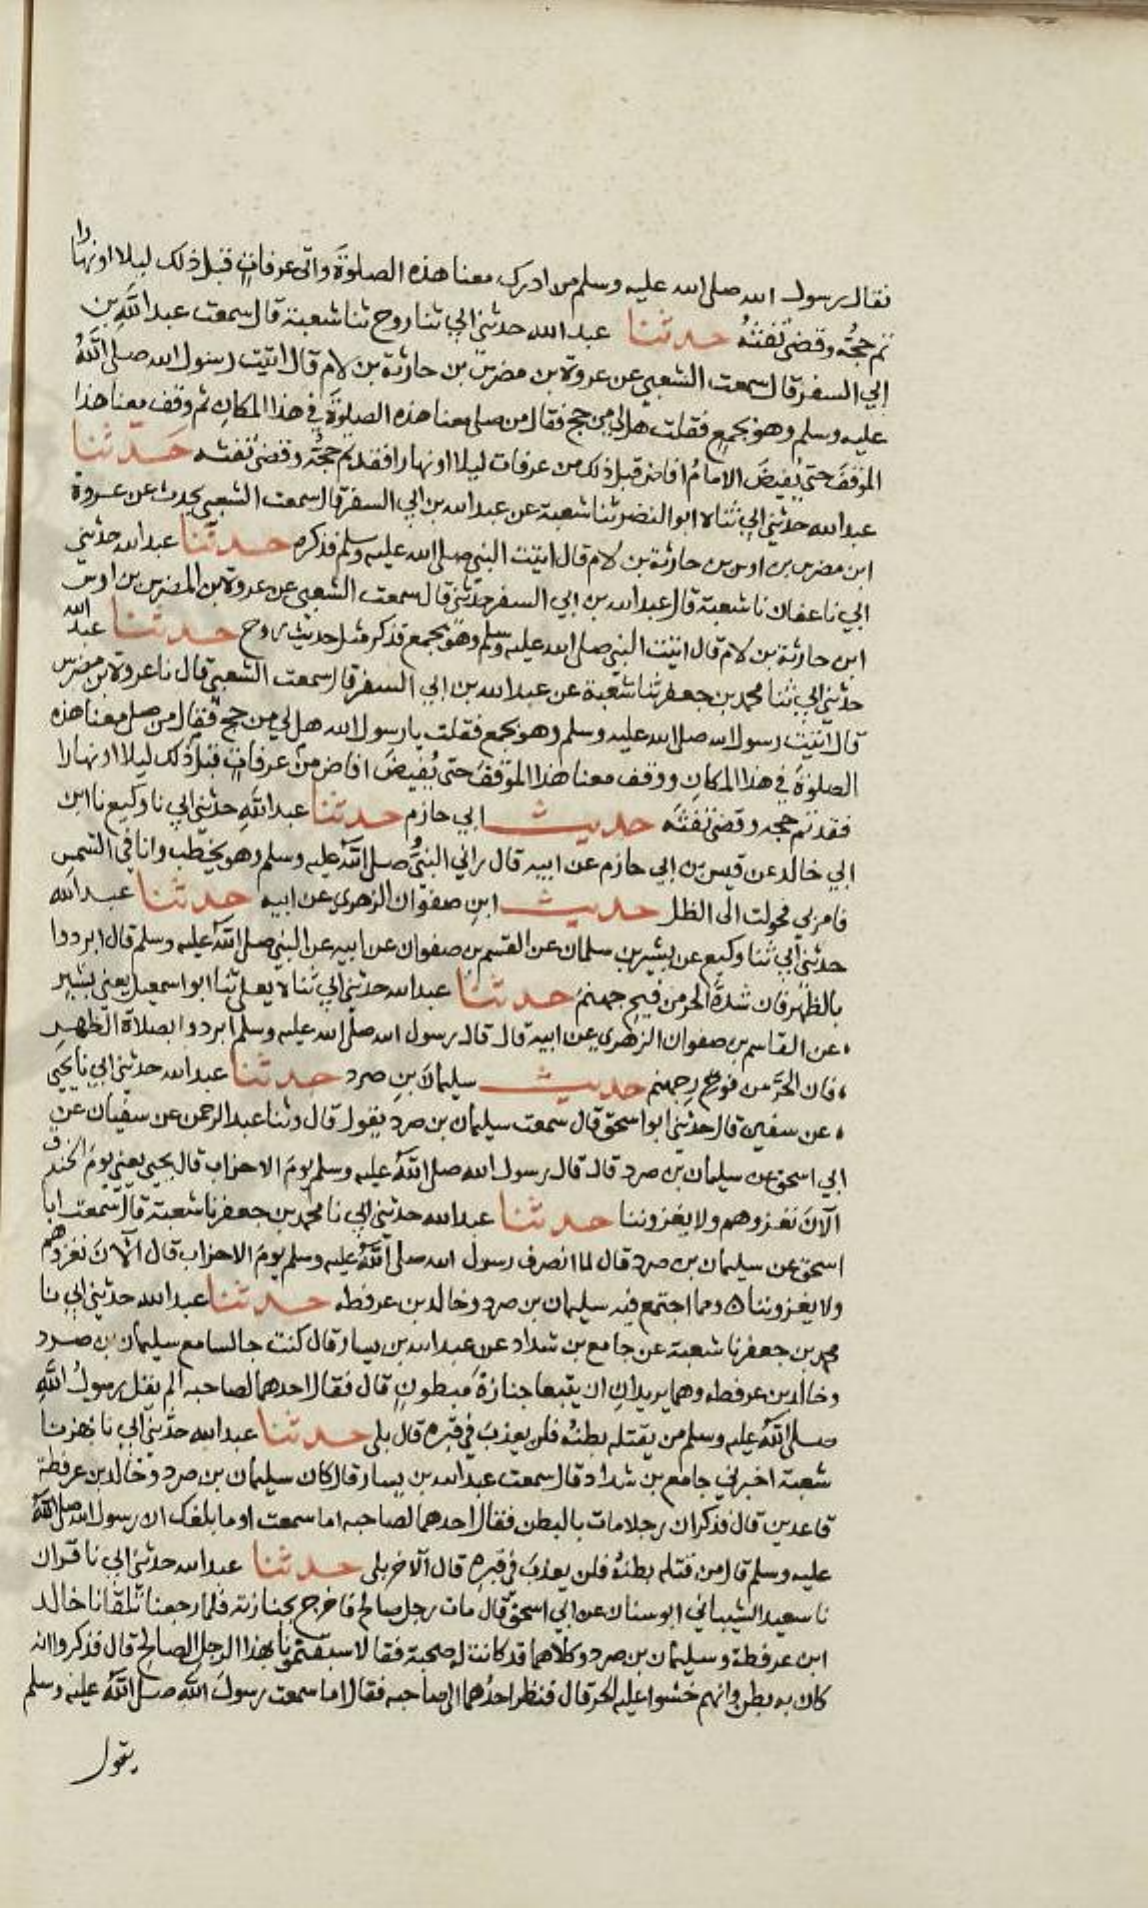 فقال رسول الله صلى الله عليه وسلم من ادرك معنا هذه الصلوة واتى عرفات قبل ذلك ليلا او نهارا
تم حجه وقضى تفثه حدثنا عبد الله حدثني ابي ثنا روح ثنا شعبة قال سمعت عبد الله بن
ابي السفر قال سمعت الشعبي عن عروة بن مضرس بن حارثة بن لام قال اتيت رسول الله صلى الله
عليه وسلم وهو بجمع فقلت هل لي من حج فقال من صلى معنا هذه الصلوة في هذا المكان ثم وقف معنا هذا
الموقف حتى يفيض الامام افاض قبل ذلك من عرفات ليلا او نهارا فقد تم حجه وقضى تفثه حدثنا
عبد الله حدثني ابي ثناه ابو النضر ثنا شعبة عن عبد الله بن ابي السفر قال سمعت الشعبي يحدث عن عروة
ابن مضرس بن اوس بن حارثة بن لام قال اتيت النبي صلى الله عليه وسلم فذكره حدثنا عبد الله حدثني
ابي نا عفان نا شعبة قال عبد الله بن ابي السفر حدثني قال سمعت الشعبي عن عروة بن المضرس بن اوس
ابن حارثة بن لام قال اتيت النبي صلى الله عليه وسلم وهو بجمع فذكر مثل حديث روح حدثنا عبد الله
حدثني ابي ثنا محمد بن جعفر ثنا شعبة عن عبد الله بن ابي السفر قال سمعت الشعبي قال نا عروة بن مضرس
قال اتيت رسول الله صلى الله عليه وسلم وهو بجمع فقلت يا رسول الله هل لي من حج فقال من صلى معنا هذه
الصلوة في هذا المكان ووقف معنا هذا الموقف حتى يفيض افاض من عرفات قبل ذلك ليلا او نهارا
فقد تم حجه وقضى تفثه حديث ابي حازم حدثنا عبد الله حدثني ابي نا وكيع نا ابن
ابي خالد عن قيس بن ابي حازم عن ابيه قال رآني النبي صلى الله عليه وسلم وهو يخطب وانا في الشمس
فامر بي فحولت الى الظل حديث ابن صفوان الزهري عن ابيه حدثنا عبد الله
حدثني ابي ثنا وكيع عن بشير بن سلمان عن القسم بن صفوان عن ابيه عن النبي صلى الله عليه وسلم قال ابردوا
بالظهر فان شدة الحر من فيح جهنم حدثنا عبد الله حدثني ابي ثناه يعلى ثنا ابو اسمعيل يعني بشير
عن القاسم بن صفوان الزهري عن ابيه قال قال رسول الله صلى الله عليه وسلم ابردوا بصلاة الظهر
فان الحر من فوح جهنم حديث سليمان بن صرد حدثنا عبد الله حدثني ابي نا يحيى
عن سفين قال حدثني ابو اسحق قال سمعت سليمان بن صرد يقول قال وثنا عبد الرحمن عن سفيان عن
ابي اسحق عن سليمان بن صرد قال قال رسول الله صلى الله عليه وسلم يوم الاحزاب قال يحيى يعني يوم الخندق
الآن نغزوهم ولا يغزوننا حدثنا عبد الله حدثني ابي نا محمد بن جعفر نا شعبة قال سمعت ابا
اسحق عن سليمان بن صرد قال لما انصرف رسول الله صلى الله عليه وسلم يوم الاحزاب قال الآن نغزوهم
ولا يغزوننا ٥ ومما اجتمع فيه سليمان بن صرد وخالد بن عرفطه حدثنا عبد الله حدثني ابي نا
محمد بن جعفر نا شعبة عن جامع بن شداد عن عبد الله بن يسار قال كنت جالسا مع سليمان بن صرد
وخالد بن عرفطه وهما يريدان ان يتبعا جنازة مبطون قال فقال احدهما لصاحبه الم يقل رسول الله
صلى الله عليه وسلم من يقتله بطنه فلن يعذب في قبره قال بلى حدثنا عبد الله حدثني ابي نا بهز نا
شعبة اخبرني جامع بن شداد قال سمعت عبد الله بن يسار قال كان سليمان بن صرد وخالد بن عرفطة
قاعدين قال فذكر ان رجلا مات بالبطن فقال احدهما لصاحبه اما سمعت او ما بلغك ان رسول الله صلى الله
عليه وسلم قال من قتله بطنه فلن يعذب في قبره قال الآخر بلى حدثنا عبد الله حدثني ابي نا قران
نا سعيد الشيباني ابو سنان عن ابي اسحق قال مات رجل صالح فاخرج بجنازته فلما رجعنا تلقانا خالد
ابن عرفطة وسليمان بن صرد وكلاهما قد كانت له صحبة فقالا سبقتمونا بهذا الرجل الصالح قال فذكروا انه
كان به بطن وانهم خشوا عليه الحر قال فنظر احدهما الى صاحبه فقال اما سمعت رسول الله صلى الله عليه وسلم
يقول